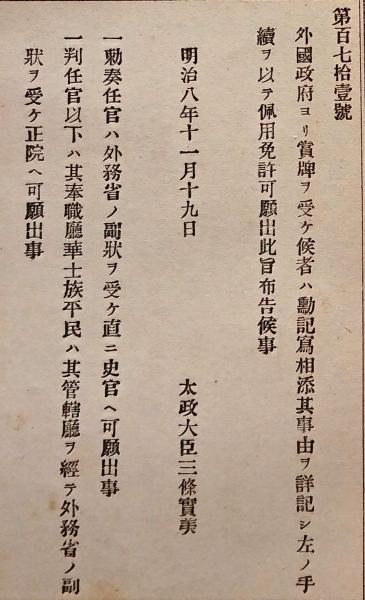 第百七拾壹號
外國政府ヨリ賞牌ヲ受ケ候者ハ勳記寫相添其事由ヲ詳記シ左ノ手
續ヲ以テ佩用免許可願出此旨布告候事
明治八年十一月十九日
太政大臣三條實美
一勅奏任官ハ外務省ノ副狀ヲ受ケ直ニ史官ヘ可願出事
一判任官以下ハ其奉職廳華士族平民ハ其管轄廳ヲ經テ外務省ノ副
狀ヲ受ケ正院ヘ可願出事